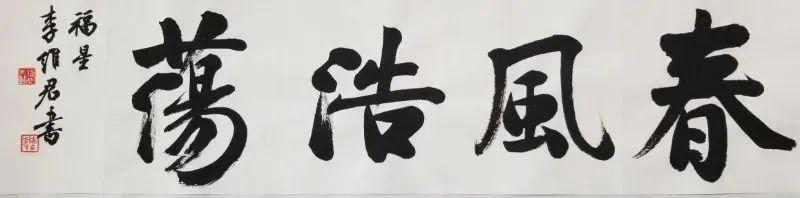 春風浩蕩
福星
李維君書